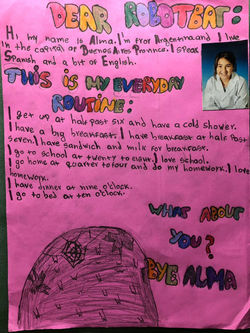 DEAR ROBOTBAT:
Hi, my name is Alma. I'm from Argentina and I live
in the capital of Buenos Aires Province. I speak
Spanish and a bit of English.
THIS IS MY EVERYDAY
ROUTINE:
I get up at half past six and have a cold shower.
I have a big breakfast. I have breakfast at half past
seven. I have sandwich and milk for breakfast.
I go to school at twenty to eight. I love school.
I go home at quarter to four and do my homework. I love
homework.
I have dinner at nine o'clock.
I go to bed at ten o'clock.
WHAT ABOUT
YOU?
BYE ALMA